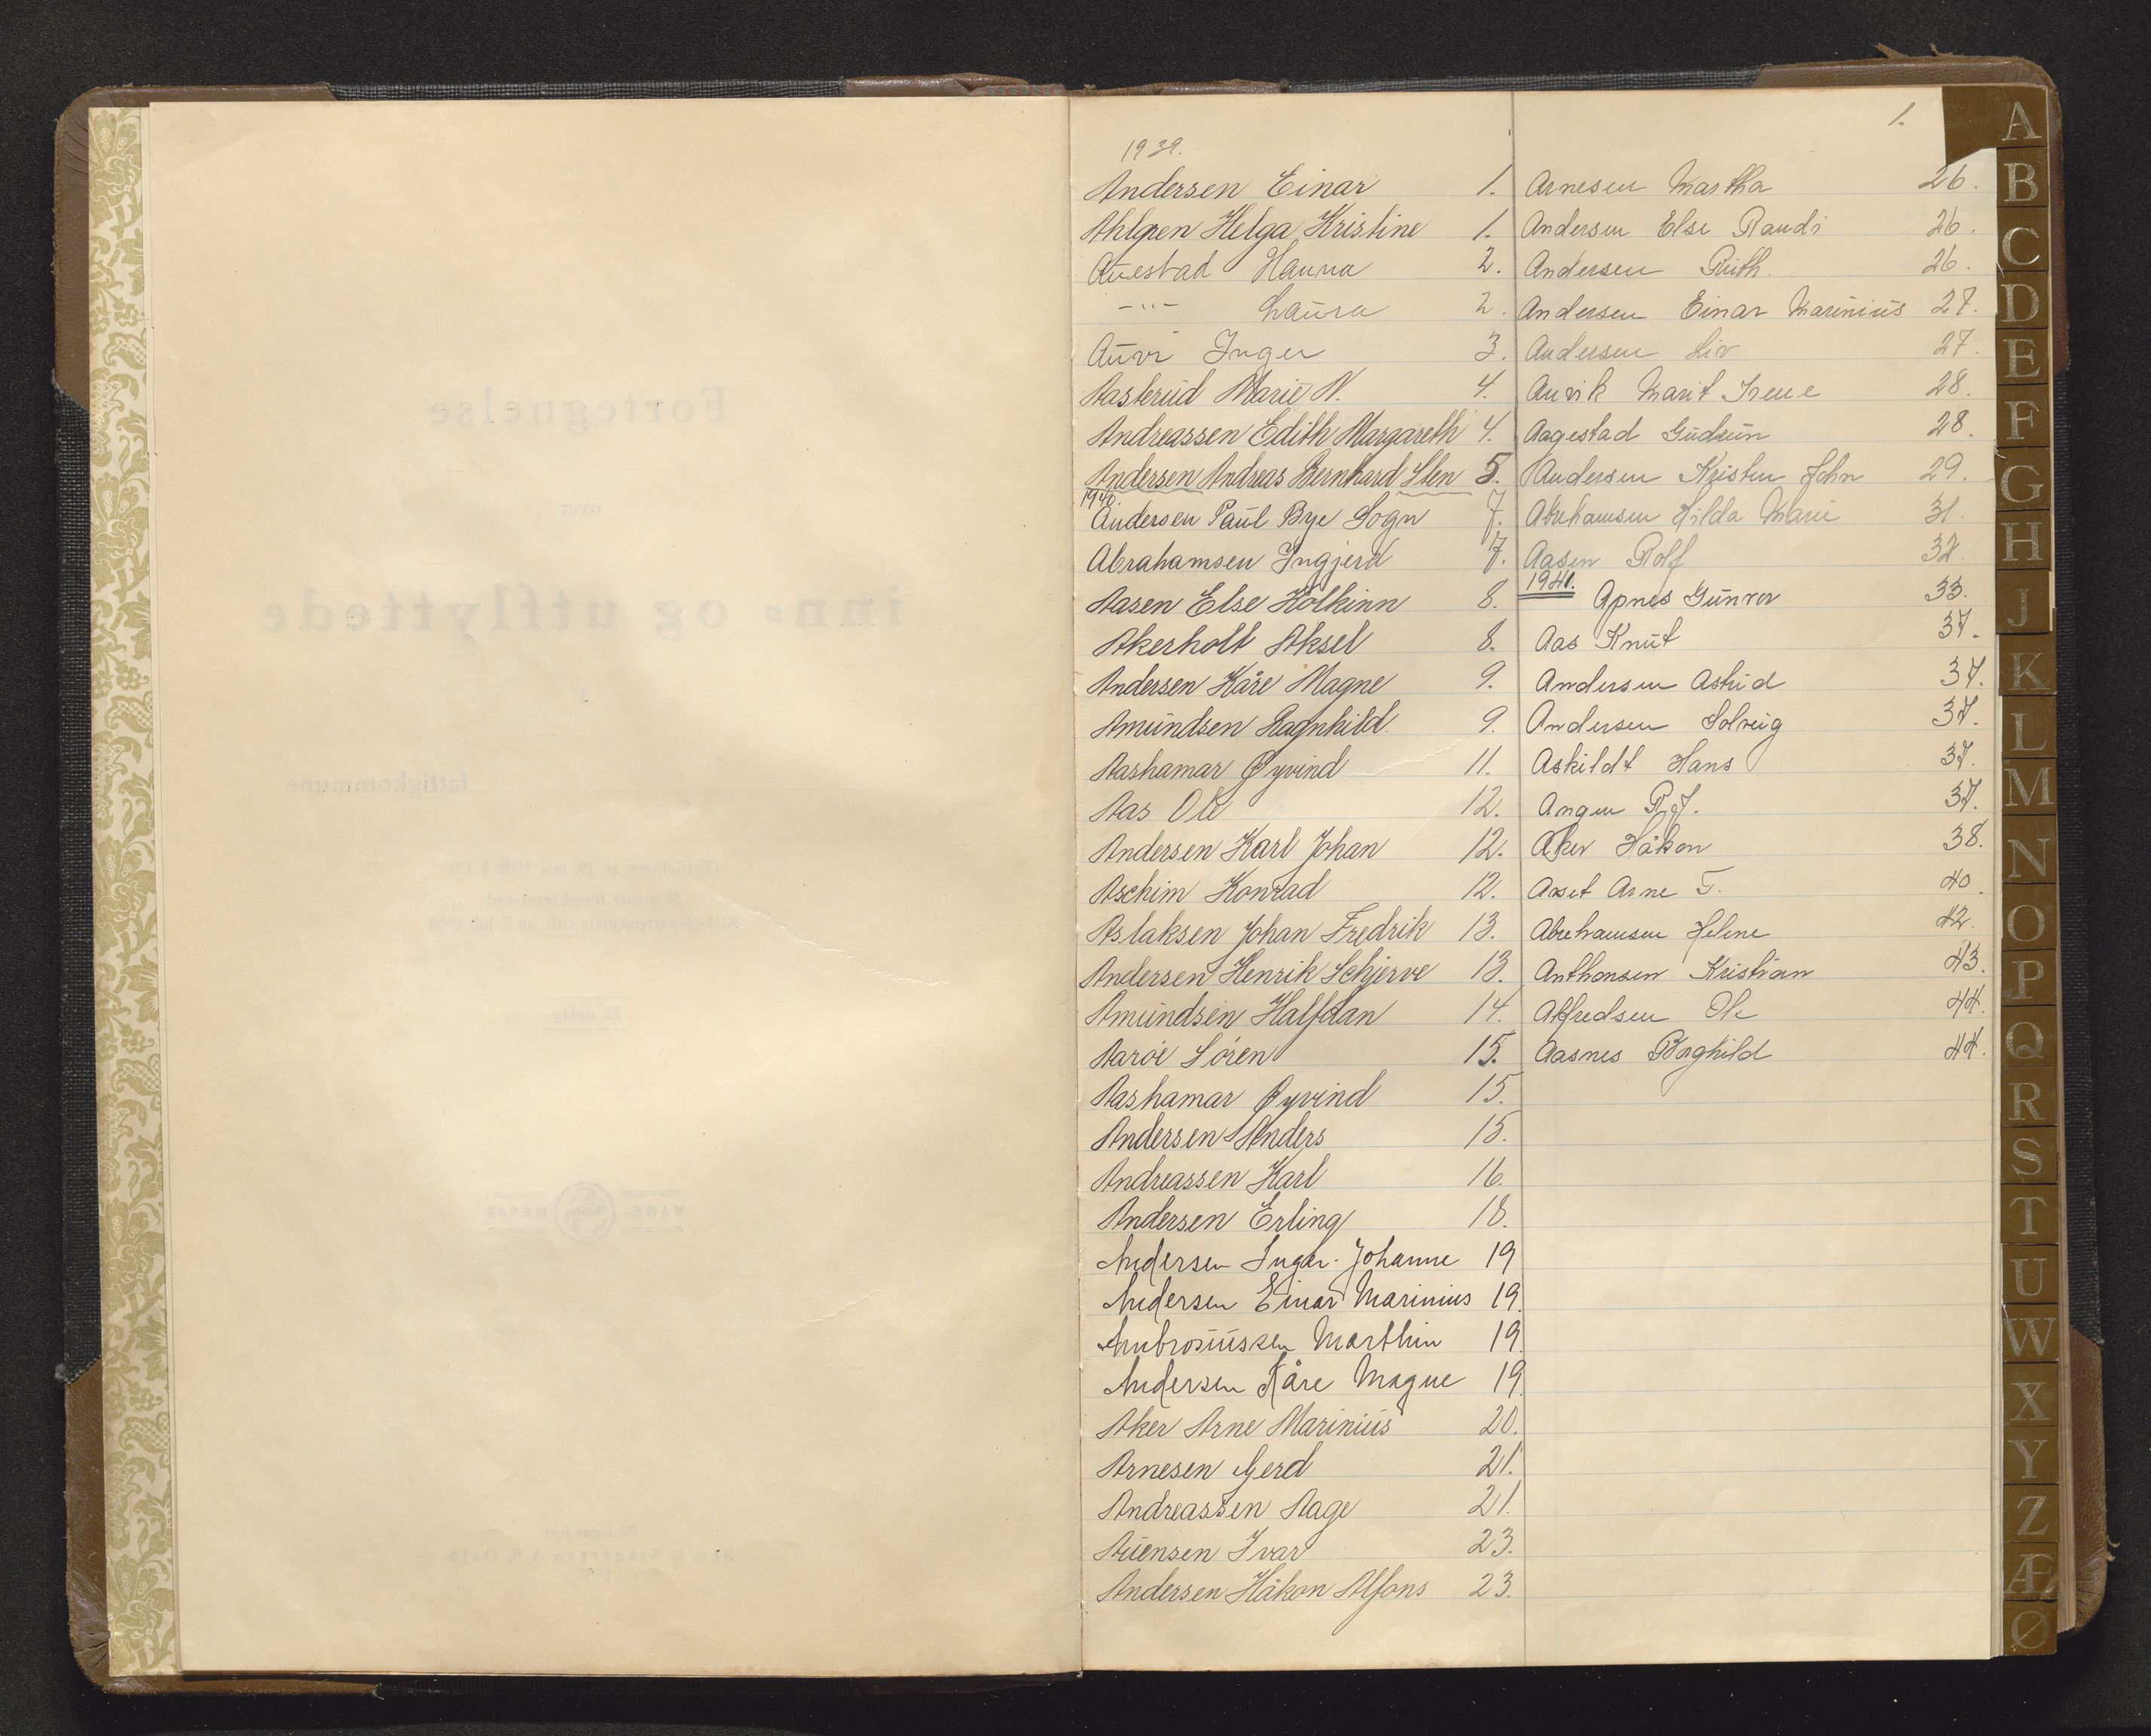 Fortegnelse
over
inn- og utflyttede
fattigkommune
1.
1939.
Andersen Einar 1.
Ahlgren Helga Kristine 1.
Auestad Hanna 2.
-"- Laura 2.
Auvi Inger 3.
Aasterud Marie N. 4.
Andreassen Edith Margareth 4.
Andersen Andreas Bernhard Sten 5.
1940.
Andersen Paul Bye Sogn 7.
Abrahamsen Ingjerd 7.
Aasen Else Kolkinn 8.
Akerholt Aksel 8.
Andersen Kåre Magne 9.
Amundsen Ragnhild 9.
Aashamar Øyvind 11.
Aas Ole 12.
Andersen Karl Johan 12.
Aschim Konrad 12.
Aslaksen Johan Fredrik 13.
Andersen Henrik Schjerve 13.
Amundsen Halfdan 14.
Aarøe Søren 15.
Aashamar Øyvind 15.
Andersen Anders 15.
Andreassen Karl 16.
Andersen Erling 18.
Andersen Inger Johanne 19
Andersen Einar Marinius 19.
Ambrosiussen Marthin 19.
Andersen Kåre Magne 19.
Aker Arne Marinius 20.
Arnesen Gerd 21.
Andreassen Aage 21.
Auensen Ivar 23.
Andersen Håkon Alfons 23.
Arnesen Martha 26.
Andersen Else Randi 26.
Andersen Ruth. 26.
Andersen Einar Marinius 27.
Andersen Liv 27.
Auvik Marit Irene 28.
Aagestad Gudrun 28.
Andersen Kristen John 29.
Abrahamsen Hilda Marie 31.
Aasen Rolf 32.
1941.
Apnes Gunvor 33.
Aas Knut 37.
Andersen Astrid 37.
Andersen Solveig 37.
Askildt Hans 37.
Angen 37.
Aker Håkon 38.
Aaset Arne T. 40.
Abrahamsen Helene 42.
Anthonsen Kristian 43.
Alfredsen Ole 44.
Aasnes Borghild 44.
A
B
C
D
E
F
G
H
J
K
L
M
N
O
P
Q
R
S
T
U
W
X
Y
Z
Æ
Ø